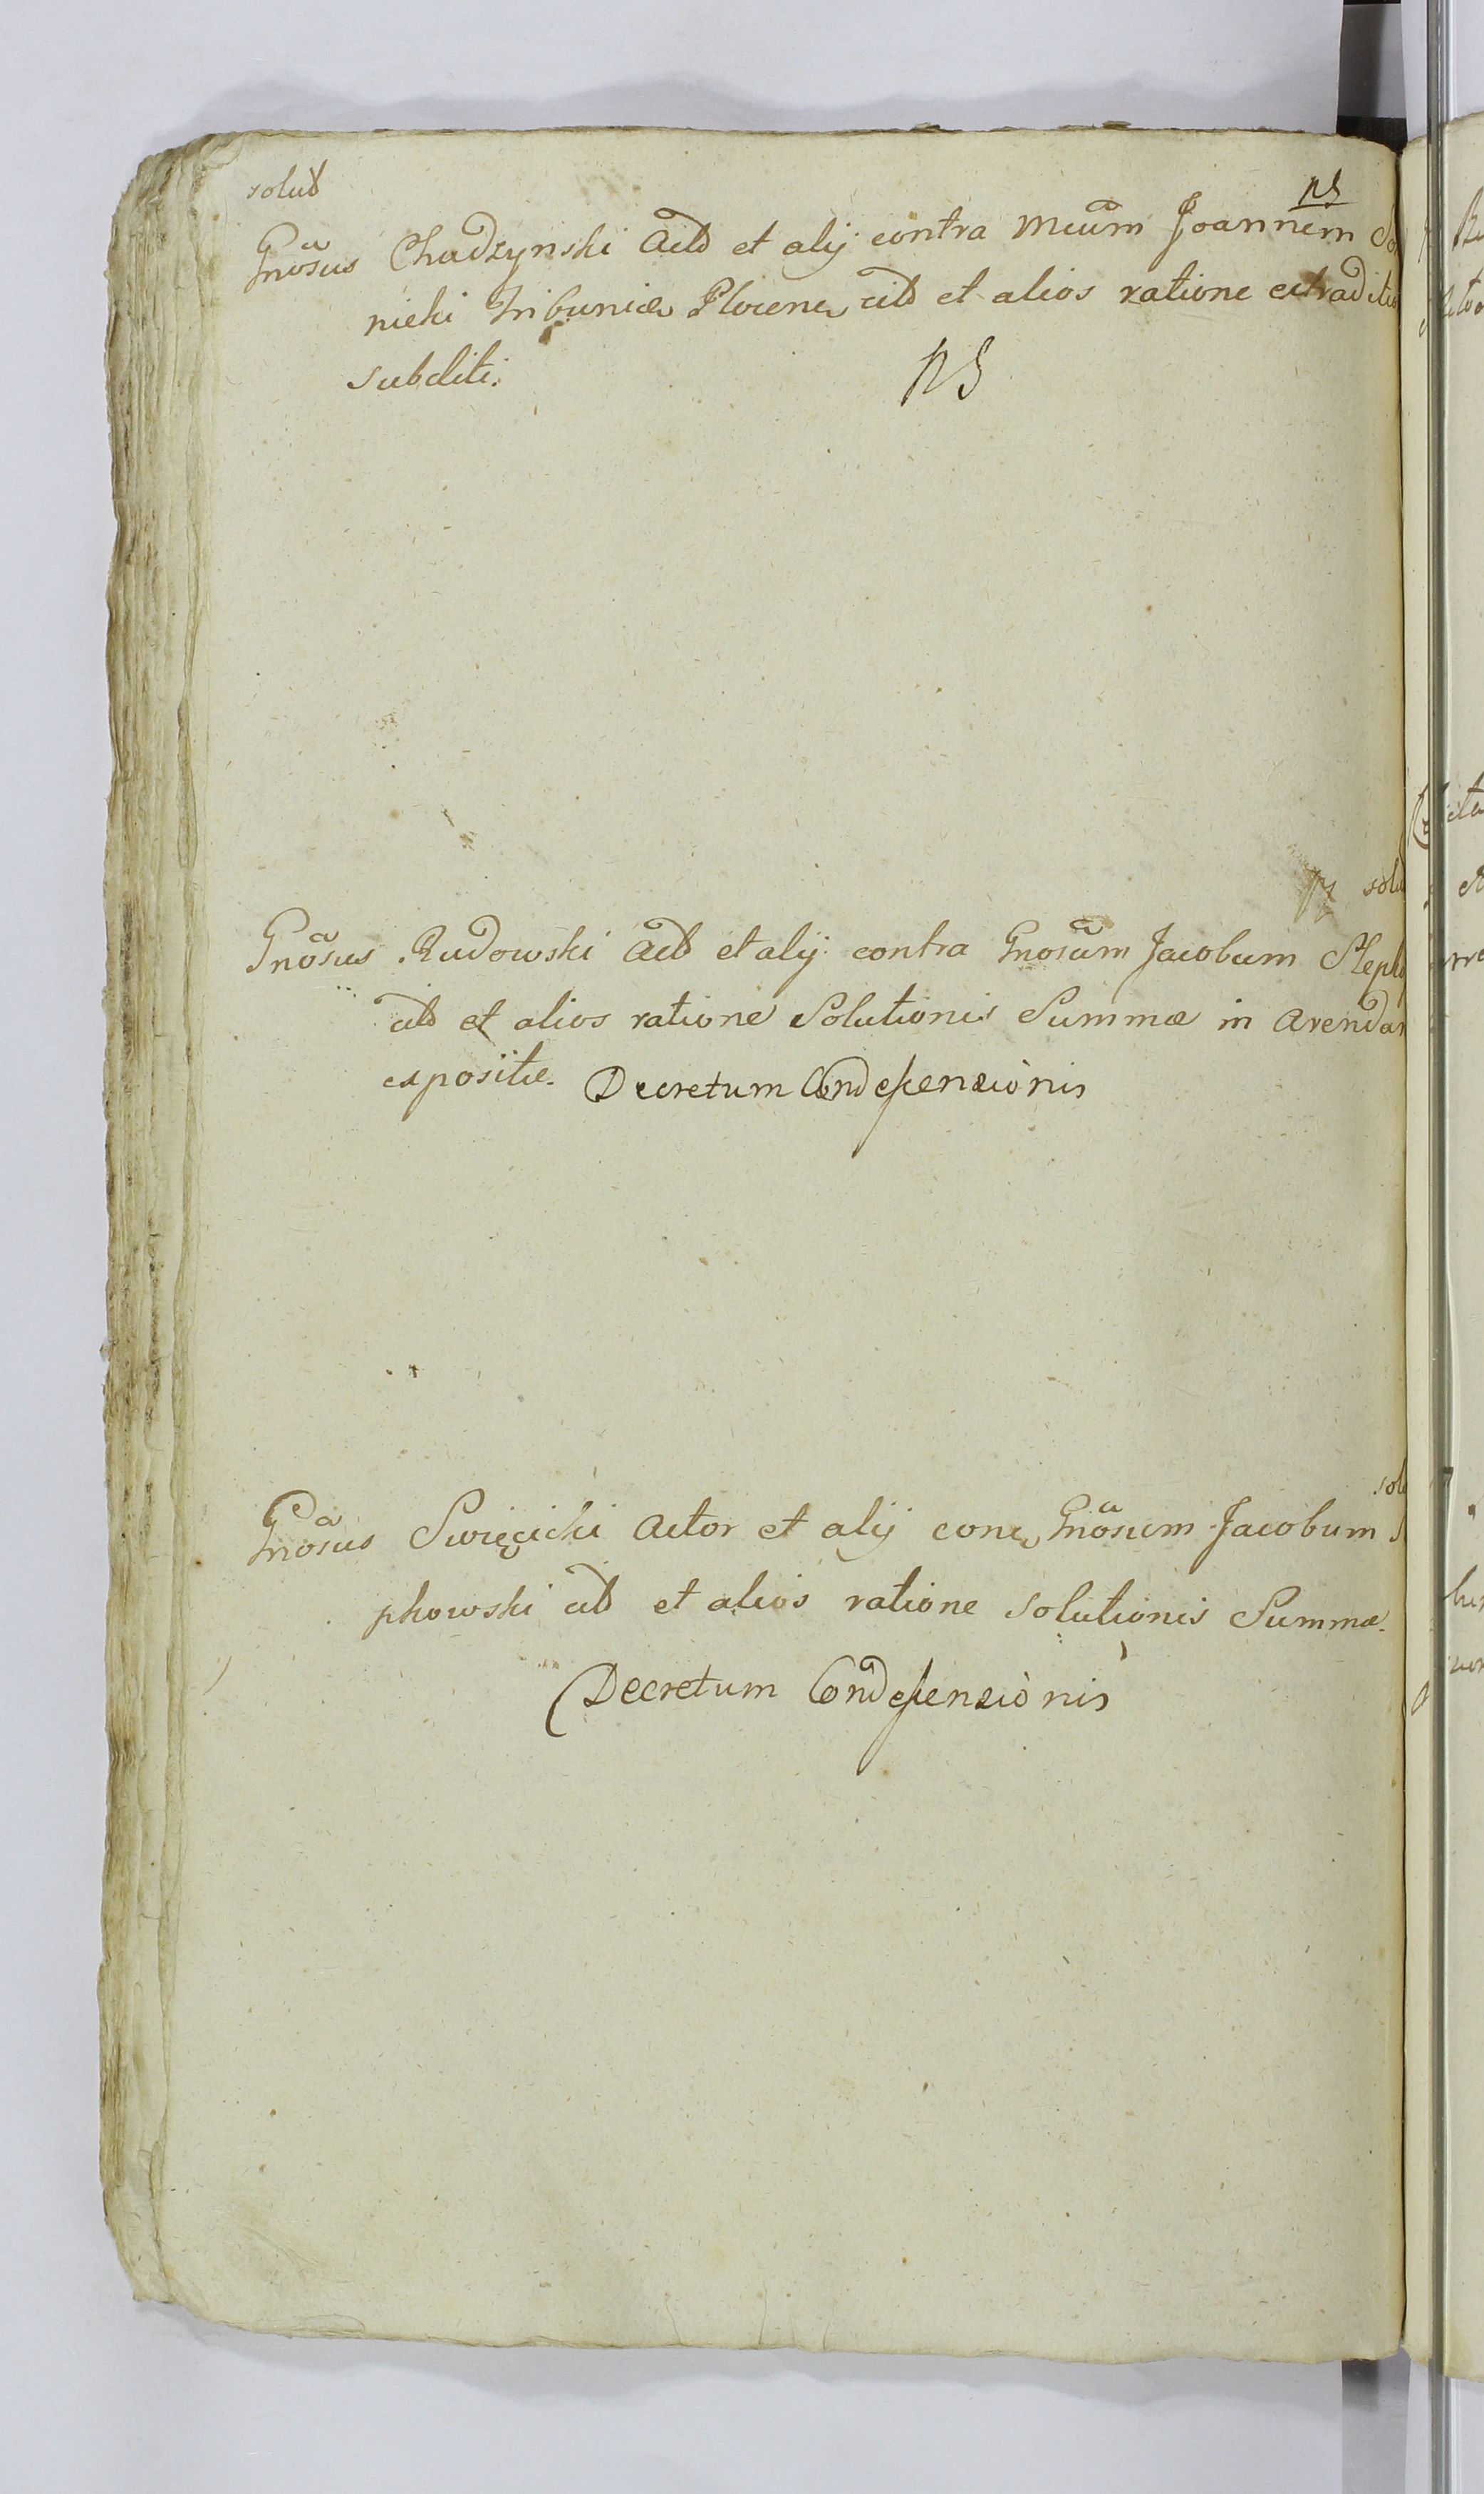 solut
ps
Gnosus Chadzynski Actò et alij contra Mcum Joannem
nicki Tribunidae Plocen citò et alios ratione extraditio
subditi.
ps
solu
Gnosus Rudowski Actò et alij contra Gnosum Jacobum Stepk
citò et alios ratione Solutionis Summæ in Arendam
expositæ. Decretum Condescensionis
sol
Gnosus Swięcicki Actor et alij con Gnosum Jacobum S
pkowski citò et alios ratione solutionis Summæ.
Decretum Condescensionis